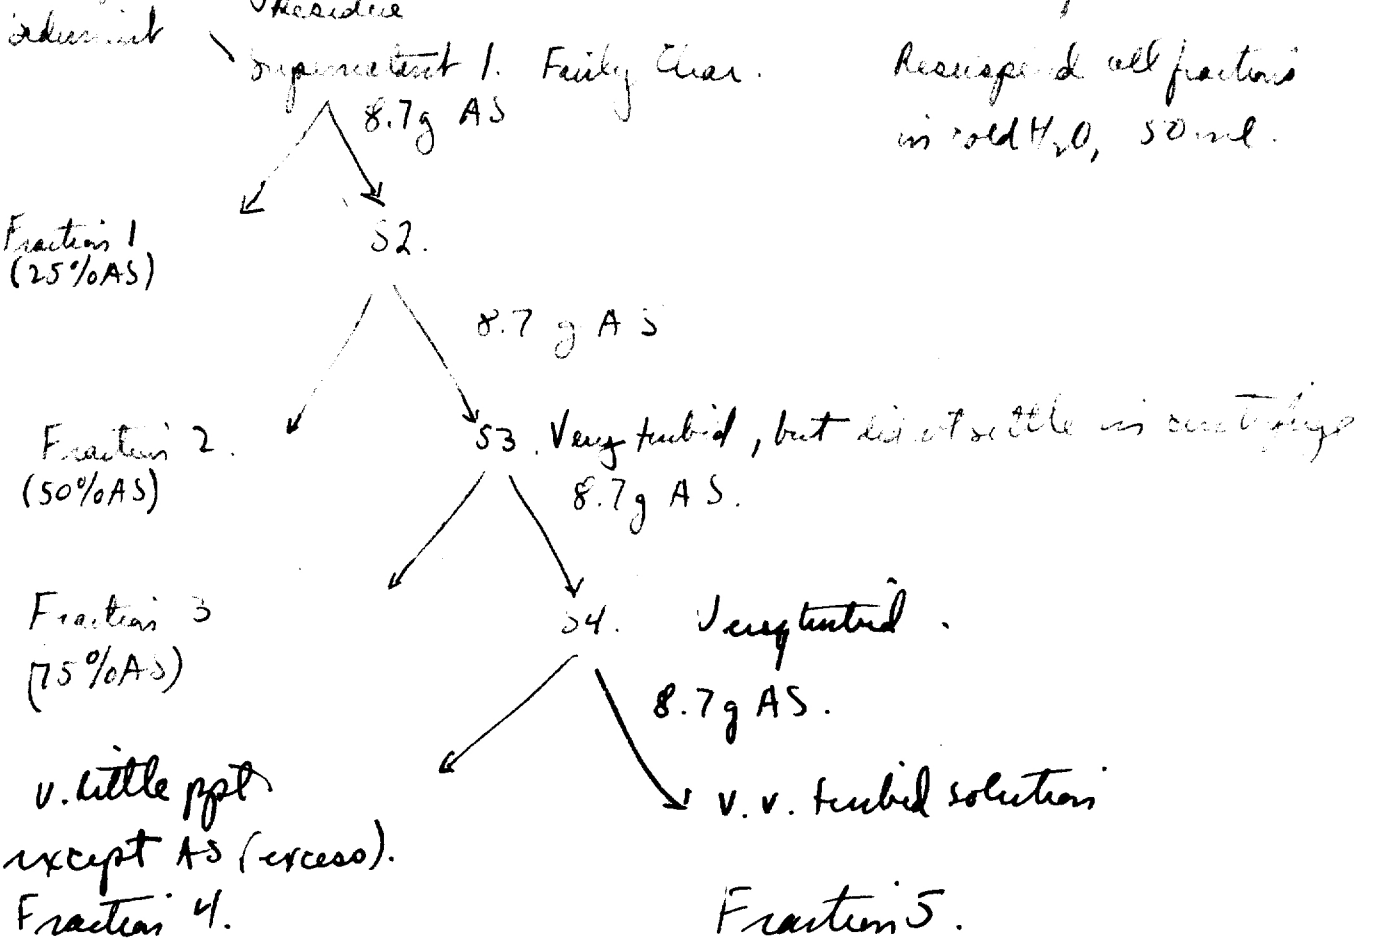 Residue
Sediment
Supernatant 1. Fairly Clear.
Resuspend all fractions
in cold H2O, 50 ml.
8.7g AS
Fraction 1
(25% AS)
S2.
8.7 g AS
Fraction 2.
(50% AS)
S3. Very turbid, but did not settle in centrifuge
8.7g AS.
Fraction 3
(75% AS)
S4. Very turbid.
8.7g AS.
v. little ppt
except AS (excess).
Fraction 4.
v. v. turbid solution
Fraction 5.